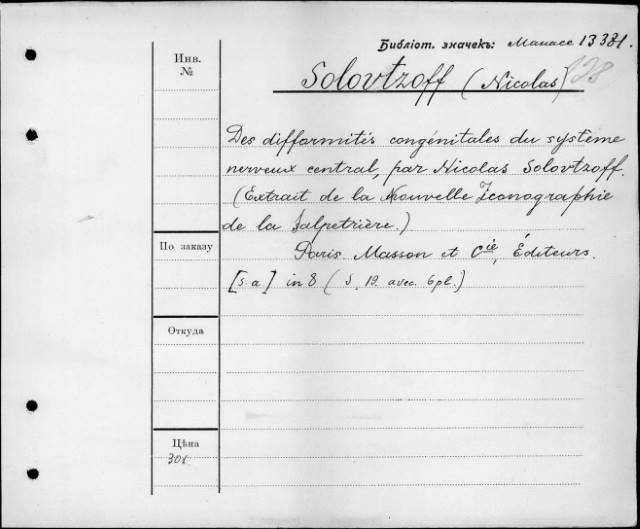 Библіот. значекъ: Манасс 13381.
Инв.
№
Solovtzoff (Nicolas)
128
Des difformités congénitales du système
nerveux central, par Nicolas Solovtzoff.
(Extrait de la Nouvelle Iconographie
de la Salpetrière.)
По заказу
Paris. Masson et Cie, Éditeurs.
[s. a.] in 8 (S. 19. avec. 6 pl.)
Откуда
Цѣна